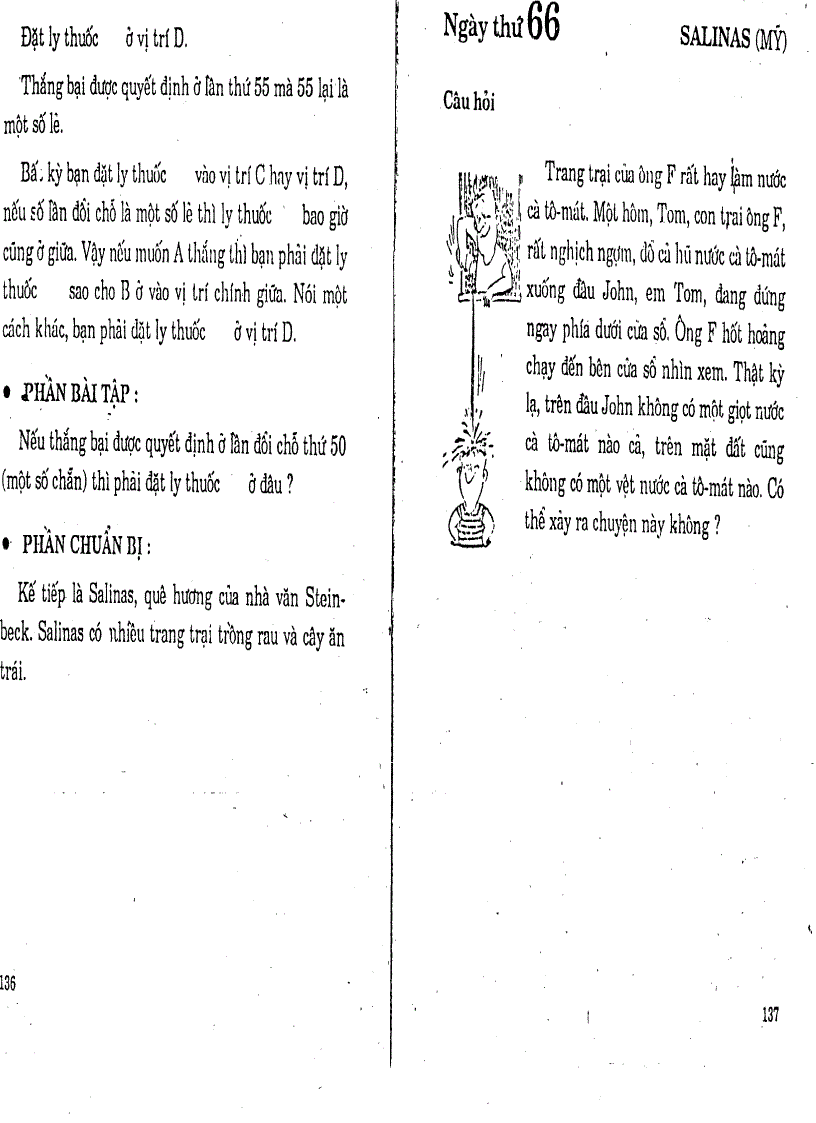 Đặt ly thuốc ở vị trí D.
Thắng bại được quyết định ở lần thứ 55 mà 55 lại là
một số lẻ.
Bất kỳ bạn đặt ly thuốc vào vị trí C hay vị trí D,
nếu số lần đổi chỗ là một số lẻ thì ly thuốc bao giờ
cũng ở giữa. Vậy nếu muốn A thắng thì bạn phải đặt ly
thuốc sao cho B ở vào vị trí chính giữa. Nói một
cách khác, bạn phải đặt ly thuốc ở vị trí D.
• PHẦN BÀI TẬP :
Nếu thắng bại được quyết định ở lần đổi chỗ thứ 50
(một số chẵn) thì phải đặt ly thuốc ở đâu ?
• PHẦN CHUẨN BỊ :
Kế tiếp là Salinas, quê hương của nhà văn Stein-
beck. Salinas có nhiều trang trại trồng rau và cây ăn
trái.
136
Ngày thứ 66 SALINAS (MỸ)
Câu hỏi
Trang trại của ông F rất hay làm nước
cà tô-mát. Một hôm, Tom, con trai ông F,
rất nghịch ngợm, đổ cả hũ nước cà tô-mát
xuống đầu John, em Tom, đang đứng
ngay phía dưới cửa sổ. Ông F hốt hoảng
chạy đến bên cửa sổ nhìn xem. Thật kỳ
lạ, trên đầu John không có một giọt nước
cà tô-mát nào cả, trên mặt đất cũng
không có một vệt nước cà tô-mát nào. Có
thể xảy ra chuyện này không ?
137